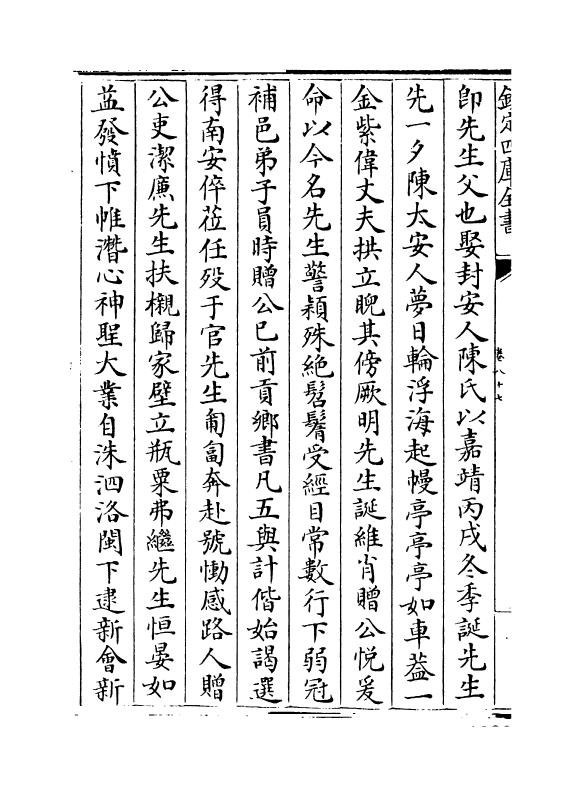 欽定四庫全書
卷八十七
卽先生父也娶封安人陳氏以嘉靖丙戌冬季誕先生
先一夕陳太安人夢日輪浮海起幔亭亭亭如車蓋一
金紫偉丈夫拱立睨其傍厥明先生誕維肖贈公悅爰
命以今名先生警穎殊絶髫鬌受經目常數行下弱冠
補邑弟子員時贈公已前貢鄉書凡五與計偕始謁選
得南安倅蒞任殁于官先生匍匐奔赴號慟感路人贈
公吏潔亷先生扶櫬歸家壁立瓶粟弗繼先生恒晏如
益發憤下帷潛心神聖大業自洙泗洛閩下逮新會新